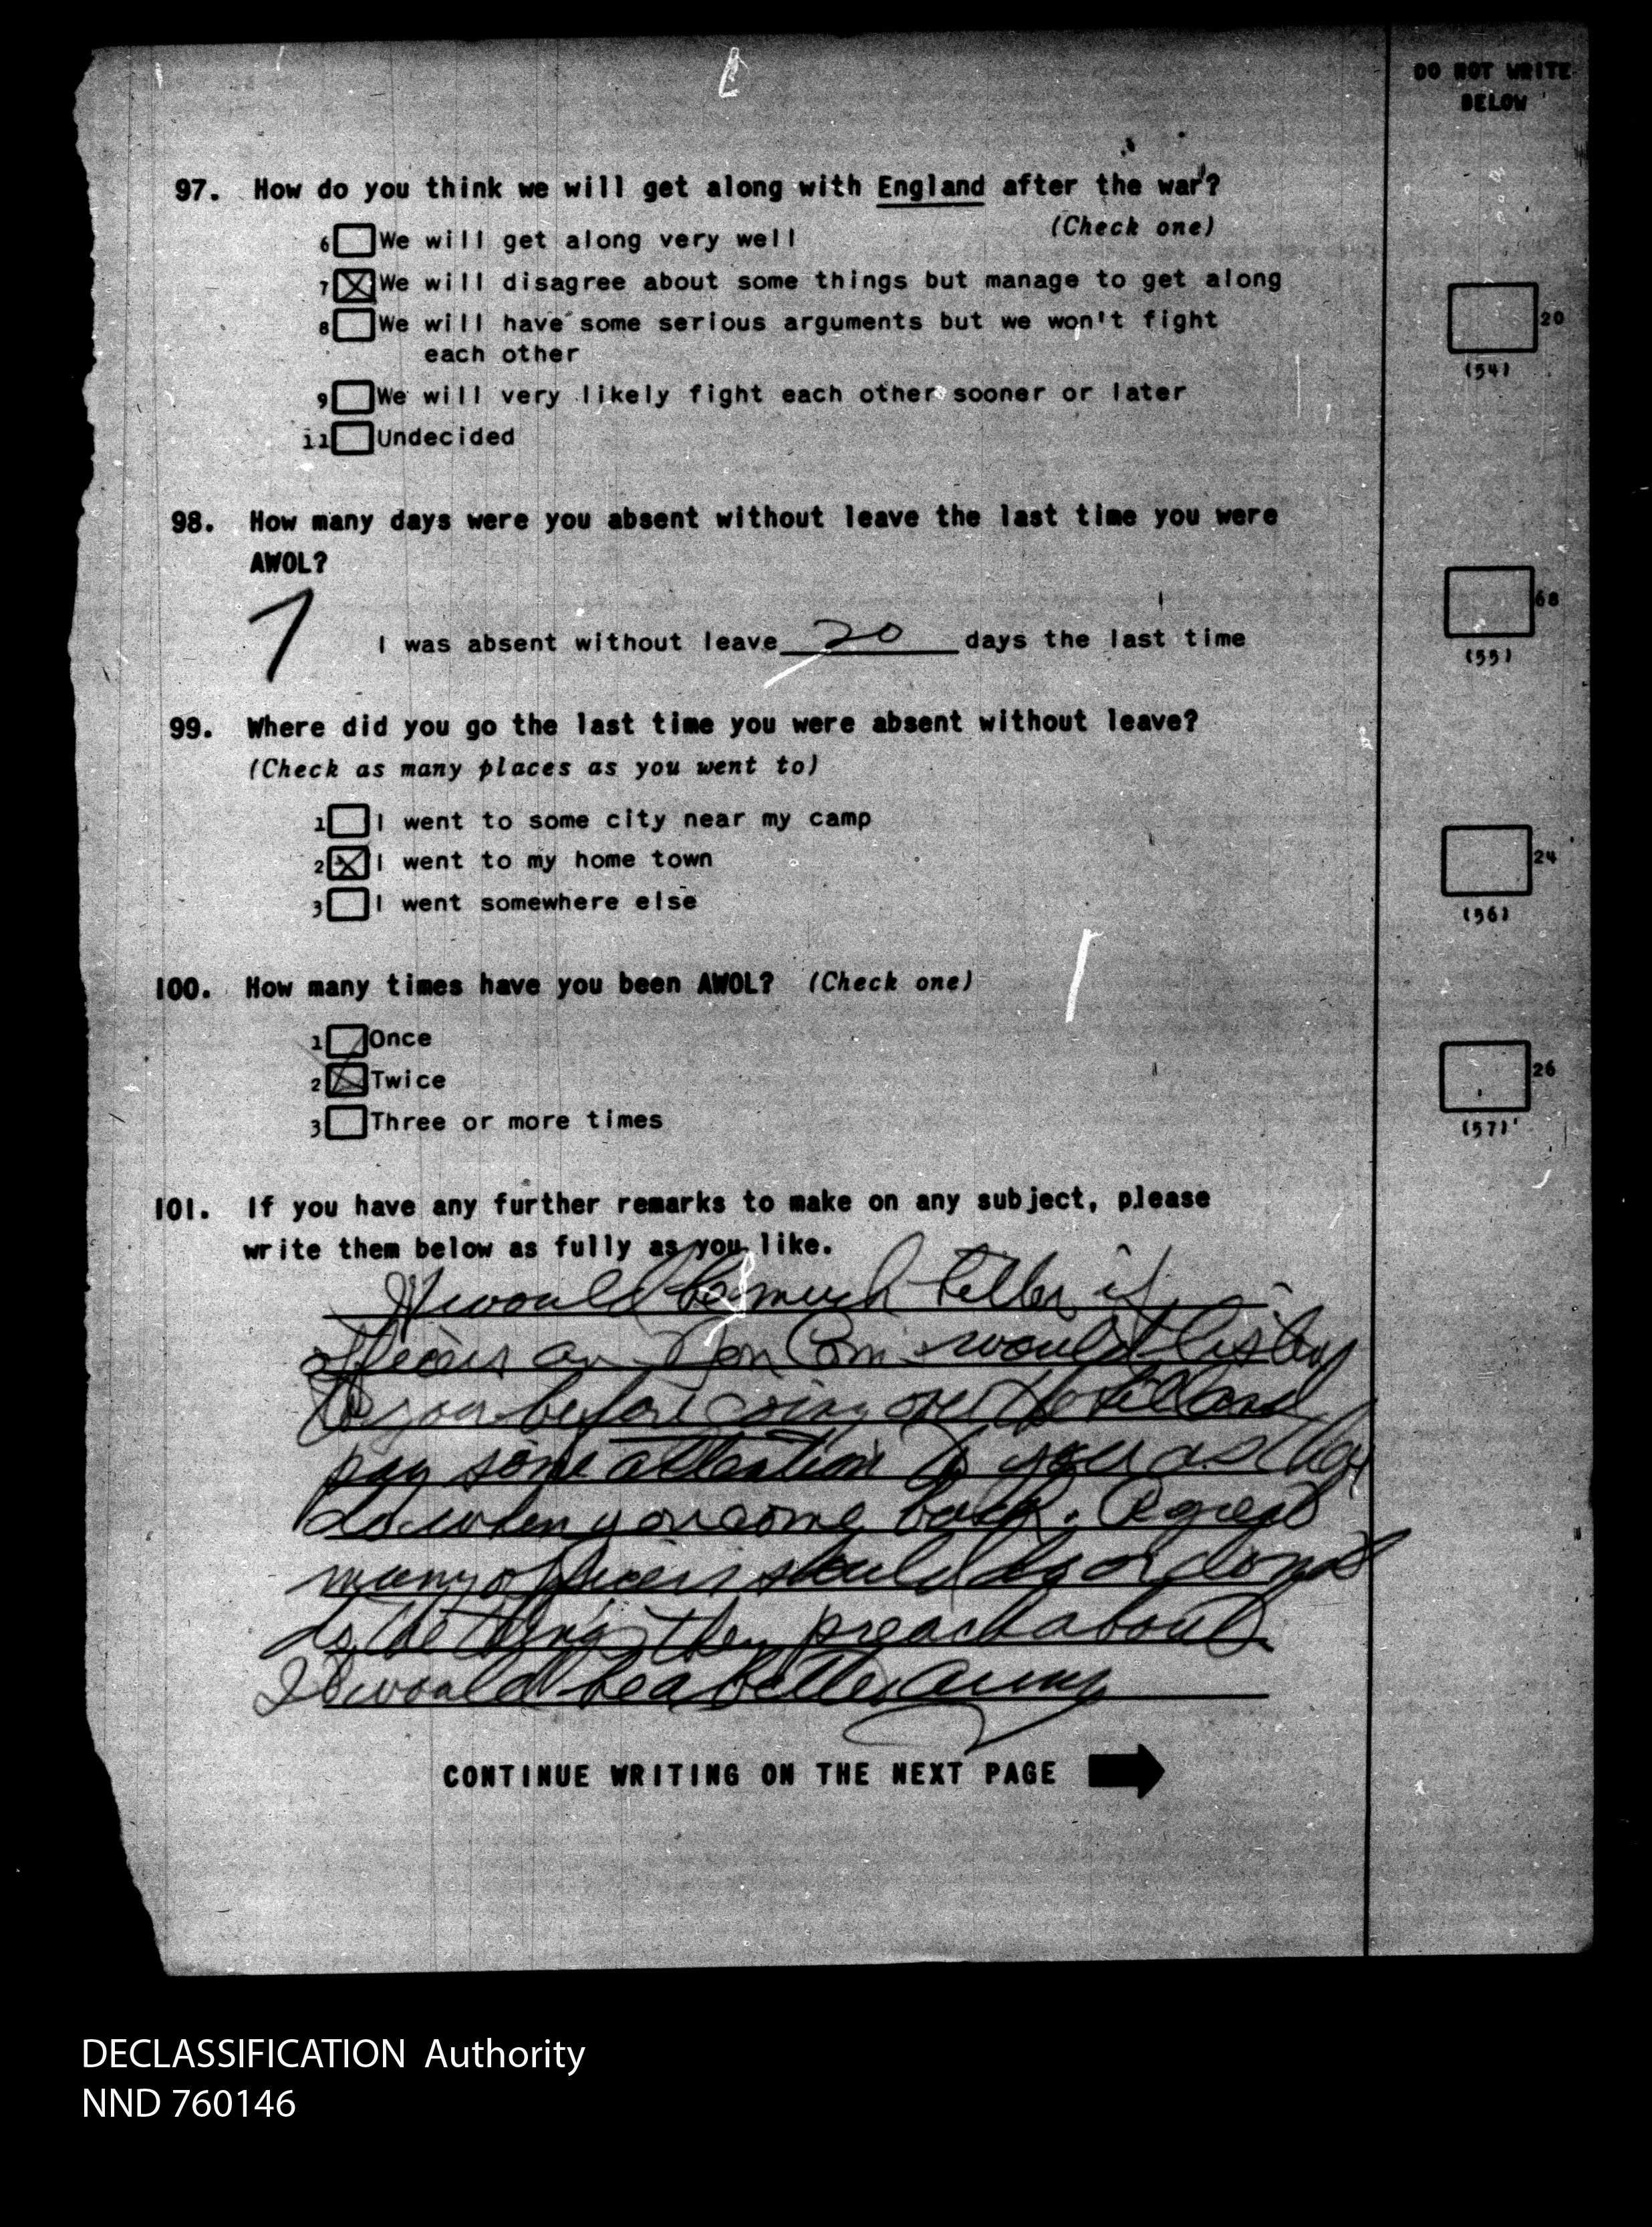 DO NOT WRITE
BELOW
97. How do you think we will get along with England after the war?
(Check one)
6 We will get along very well
7 X We will disagree about some things but manage to get along
8 We will have some serious arguments but we won't fight
each other
20
(54)
9 We will very likely fight each other sooner or later
11 Undecided
98. How many days were you absent without leave the last time you were
AWOL?
68
(55)
7
I was absent without leave 20 days the last time
99. Where did you go the last time you were absent without leave?
(Check as many places as you went to)
1 I went to some city near my camp
2 X I went to my home town
3 I went somewhere else
24
(56)
100. How many times have you been AWOL? (Check one)
1 Once
2 X Twice
3 Three or more times
26
(57)
101. If you have any further remarks to make on any subject, please
write them below as fully as you like.
It would be much better if
officers or Non Com would listen
to you before going over the hill and
pay some attention to you as they
do when you come back. A great
many officers should do or dont
do the things they preach about
It would be a better army
CONTINUE WRITING ON THE NEXT PAGE
DECLASSIFICATION Authority
NND 760146